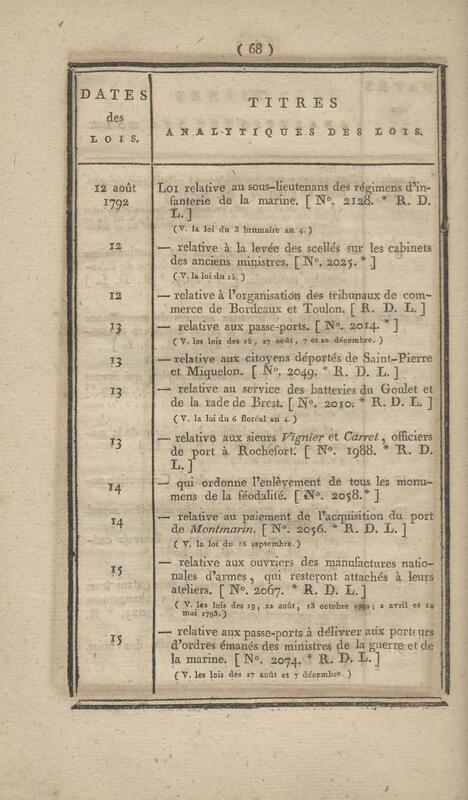 ( 68 )
DATES
des
LOIS.
TITRES
ANALYTIQUES DES LOIS.
12 août
1792
LOI relative au sous-lieutenans des régimens d'in-
fanterie de la marine. [ N°. 2128. * R. D.
L. ]
( V. la loi du 3 brumaire an 4. )
12
— relative à la levée des scellés sur les cabinets
des anciens ministres. [ N°. 2025. * ]
( V. la loi du 15. )
12
— relative à l'organisation des tribunaux de com-
merce de Bordeaux et Toulon. [ R. D. L. ]
13
— relative aux passe-ports. [ N°. 2014. * ]
( V. les lois des 15, 27 août, 7 et 20 décembre. )
13
— relative aux citoyens déportés de Saint-Pierre
et Miquelon. [ N°. 2049. * R. D. L. ]
13
— relative au service des batteries du Goulet et
de la rade de Brest. [ N°. 2010. * R. D. L. ]
( V. la loi du 6 floréal an 4. )
13
— relative aux sieurs Vignier et Carret, officiers
de port à Rochefort. [ N°. 1988. * R. D.
L. ]
14
— qui ordonne l'enlèvement de tous les monu-
mens de la féodalité. [ N°. 2058. * ]
14
— relative au paiement de l'acquisition du port
de Montmarin. [ N°. 2056. * R. D. L. ]
( V. la loi du 16 septembre. )
15
— relative aux ouvriers des manufactures natio-
nales d'armes, qui resteront attachés à leurs
ateliers. [ N°. 2067. * R. D. L. ]
( V. les lois des 19, 22 août, 13 octobre 1792; 2 avril et 14
mai 1793. )
15
— relative aux passe-ports à délivrer aux porteurs
d'ordres émanés des ministres de la guerre et de
la marine. [ N°. 2074. * R. D. L. ]
( V. les lois des 27 août et 7 décembre. )